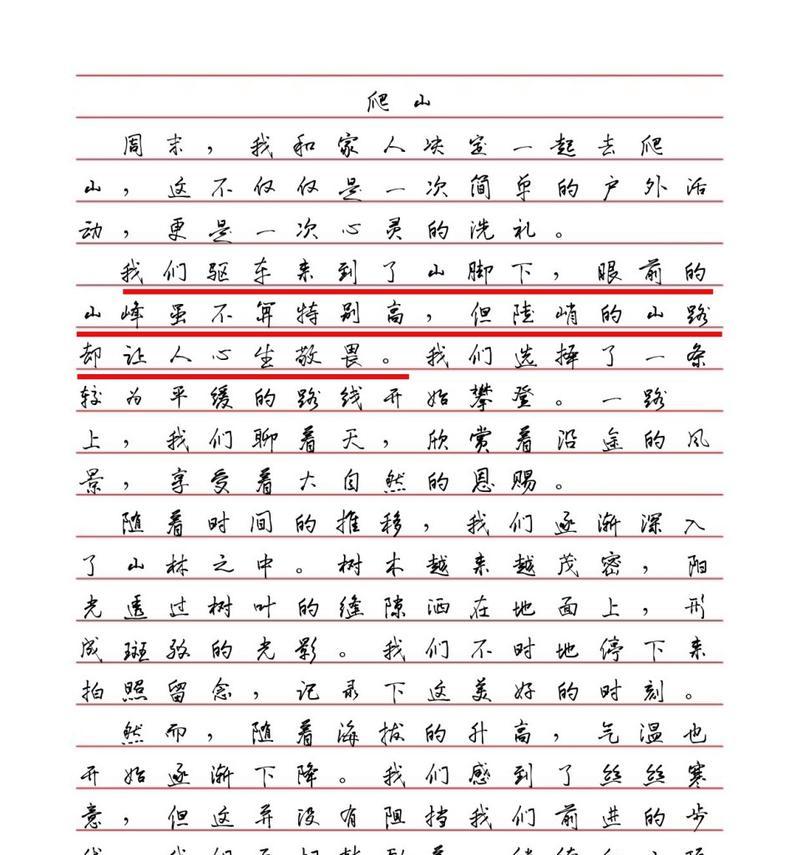 爬山
周末，我和家人决定一起去爬
山，这不仅仅是一次简单的户外活
动，更是一次心灵的洗礼。
我们驱车来到了山脚下，眼前的
山峰虽不算特别高，但陡峭的山路
却让人心生敬畏。我们选择了一条
较为平缓的路线开始攀登。一路
上，我们聊着天，欣赏着沿途的风
景，享受着大自然的恩赐。
随着时间的推移，我们逐渐深入
了山林之中。树木越来越茂密，阳
光透过树叶的缝隙洒在地面上，形
成斑驳的光影。我们不时地停下来
拍照留念，记录下这美好的时刻。
然而，随着海拔的升高，气温也
开始逐渐下降。我们感到了丝丝寒
意，但这并没有阻挡我们前进的步